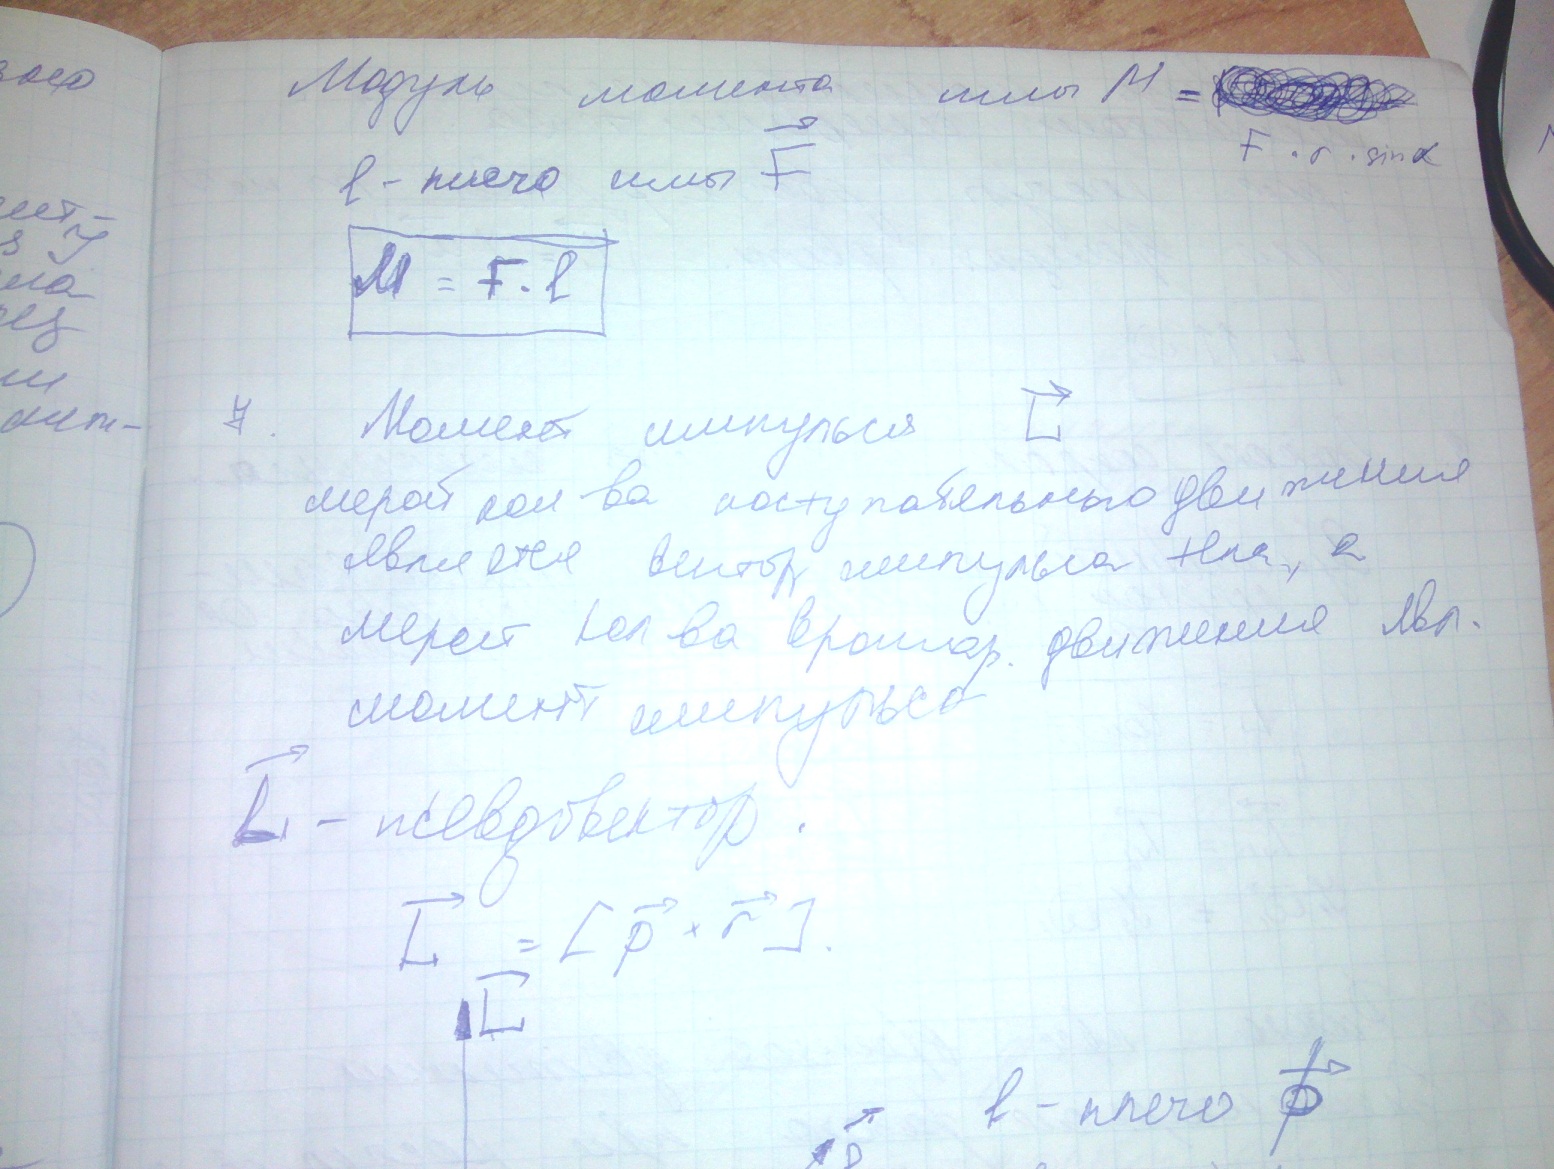 Модуль момента силы M =
F · r · sinα
l - плечо силы F
M = F · l
7. Момент импульса L
мерой кол ва поступательного движения
является вектор импульса тела, а
мерой кол ва вращар. движения явл.
момент импульса
L - псевдовектор.
L = [p × r].
L
l - плечо p
p